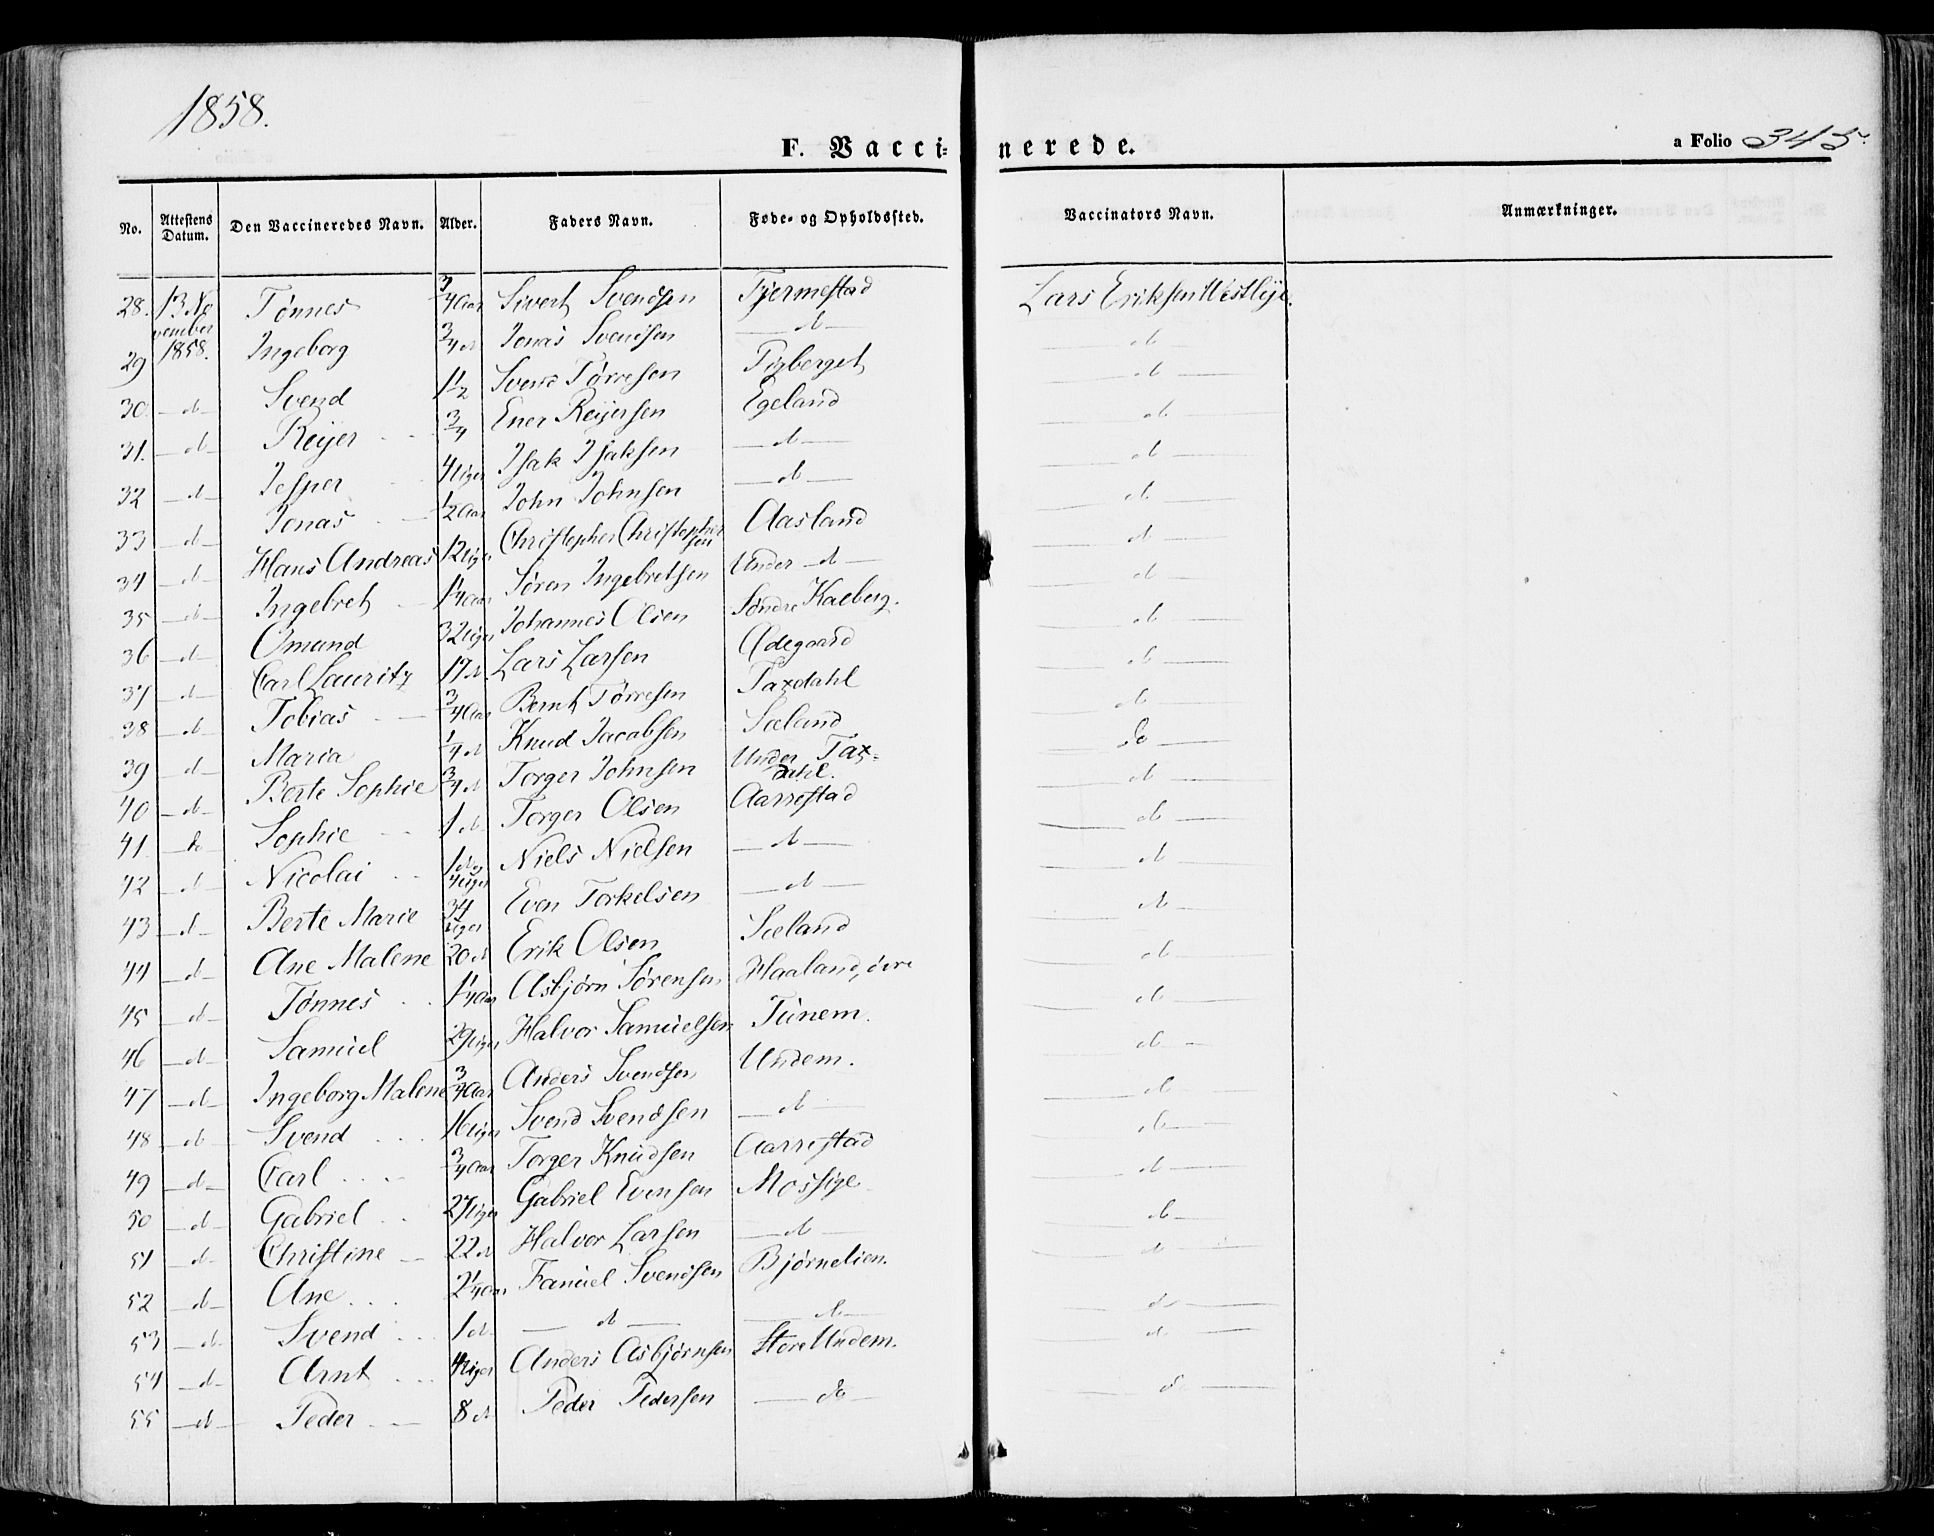 1858.
F. Vaccinerede.
a Folio 345.
No. Attestens Datum. Den Vaccineredes Navn. Alder. Faders Navn. Føde- og Opholdssted. Vaccinators Navn. Anmærkninger.
28. 13 November 1858. Tønnes 3/4 Aar Sivert Svendsen Tjermestad Lars Eriksen Westlye.
29 Ingeborg 3/4 d Jonas Svendsen d d
30. d Svend 1 1/2 Svend Tørresen d
31. d Reijer 3/4 Ener Reijersen Egeland d
32 d Jesper 4 Uger Isak Isaksen d d
33 d Jonas 1/2 Aar John Johnsen d d
34 d Hans Andreas 12 Uger Christopher Christophersen Aasland d
35 d Ingebret 1 1/4 Aar Søren Ingebretsen Under d d
36 d Omund 32 Uger Johannes Olsen Søndre Kaeberg. d
37 d Carl Lauritz 17 d. Lars Larsen Ødegaard d
38 d Tobias 3/4 Aar Bernt Tørresen Taxdahl d
39 d Maria 1/4 d Knud Jacobsen Sæland do
40 d Berte Sophie 3/4 d Torger Johnsen Under Tax-dahl. d
41. do Sophie 1 d Torger Olsen Aarrestad d
42 d Nicolai 1 d og 4 Uger Niels Nielsen d d
43 d Berte Marie 34 Uger Even Torkelsen d d
44 d Ane Malene 20 d Erik Olsen Sæland d
45 d Tønnes 1 1/4 Aar Asbjørn Sørensen Haaland, øvre d
46 d Samuel 29 Uger Halvor Samuelsen Tunem. d
47 d Ingeborg Malene 3/4 Aar Anders Svendsen Undem. d
48 d Svend 16 Uger Svend Svendsen d d
49 d Carl 3/4 Aar Torger Knudsen Aarrestad d
50 d Gabriel 27 Uger Gabriel Evensen Mossige d
51 d Christine 22 d Halvor Larsen d d
52 d Ane 2 1/4 Aar Samuel Svendsen Bjørnelien. d
53 d Svend 1 d. d d d
54 d Arnt 4 Uger Anders Asbjørnsen Store Undem. d
55 d Peder 8 d Peder Pedersen do